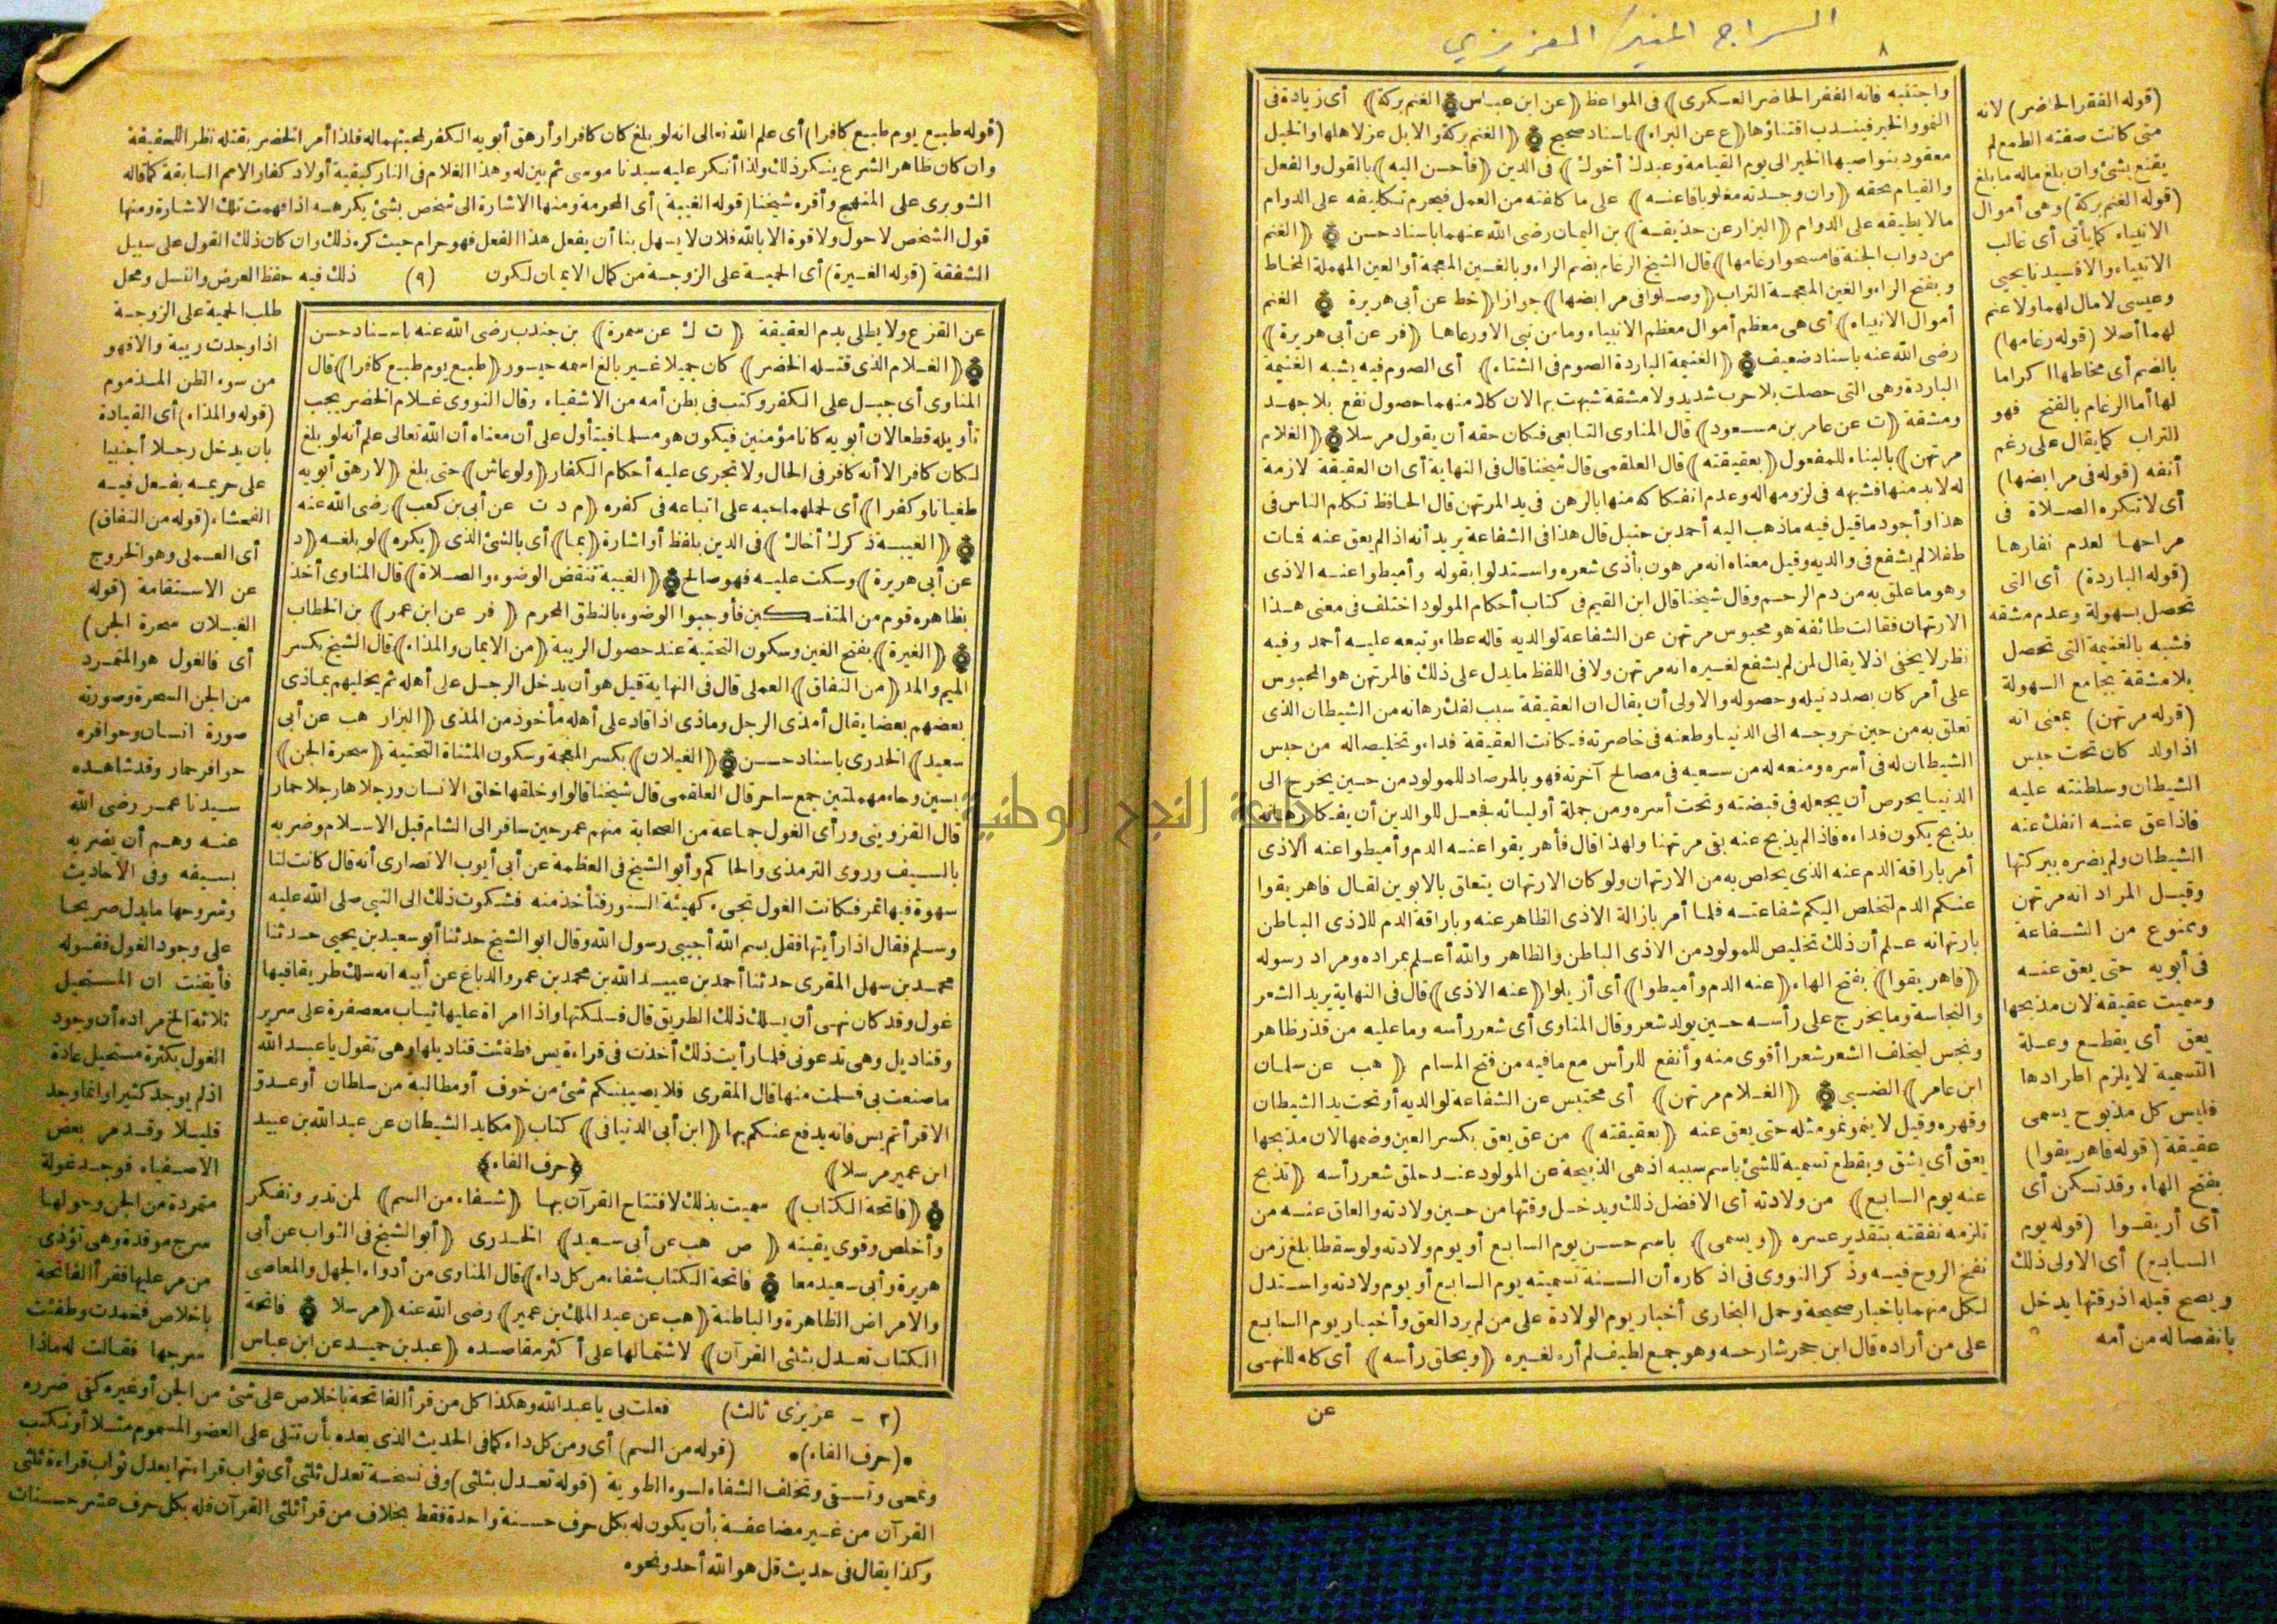 السراج المنير العزيزي
٨
واجتنبه فانه الفقر الحاضر العسكرى) فى المواعظ (عن ابن عباس الغنم بركة) أى زيادة فى
النمو والخير فيندب اقتناؤها (ع عن البراء) باسناد صحيح (الغنم بركة والابل عز لاهلها والخيل
معقود بنواصيها الخير الى يوم القيامة وعبدك أخوك) فى الدين (فأحسن اليه) بالقول والفعل
والقيام بحقه (وان وجدته مغلوبا فأعنه) على ما كلفته من العمل فيحرم تكليفه على الدوام
مالا يطيقه على الدوام (البزار عن حذيفة) بن اليمان رضى الله عنهما باسناد حسن (الغنم
من دواب الجنة فامسحوا رغامها) قال الشيخ الرغام بضم الراء وبالغين المعجمة أو العين المهملة المخاط
وبفتح الراء والغين المعجمة التراب (وصلوا فى مرابضها) جوازا (خط عن أبى هريرة الغنم
أموال الانبياء) أى هى معظم أموال معظم الانبياء وما من نبى الا ورعاها (فر عن أبى هريرة)
رضى الله عنه باسناد ضعيف (الغنيمة الباردة الصوم فى الشتاء) أى الصوم فيه يشبه الغنيمة
الباردة وهى التى حصلت بلا حرب شديد ولا مشقة شبهت بها لان كلا منهما حصول نفع بلا جهد
ومشقة (ت عن عامر بن مسعود) قال المناوى التابعى فكان حقه أن يقول مرسلا (الغلام
مرتهن) بالبناء للمفعول (بعقيقته) قال العلقمى قال شيخنا قال فى النهاية أى ان العقيقة لازمة
له لابد منها فشبهه فى لزومها له وعدم انفكاكه منها بالرهن فى يد المرتهن قال الحافظ تكلم الناس فى
هذا وأجود ما قيل فيه ما ذهب اليه أحمد بن حنبل قال هذا فى الشفاعة يريد أنه اذا لم يعق عنه فمات
طفلا لم يشفع فى والديه وقيل معناه انه مرهون بأذى شعره واستدلوا بقوله وأميطوا عنه الاذى
وهو ما علق به من دم الرحم وقال شيخنا قال ابن القيم فى كتاب أحكام المولود اختلف فى معنى هذا
الارتهان فقالت طائفة هو محبوس مرتهن عن الشفاعة لوالديه قاله عطاء وتبعه عليه أحمد وفيه
نظر لا يخفى اذ لا يقال لمن لم يشفع لغيره انه مرتهن ولا فى اللفظ ما يدل على ذلك فالمرتهن هو المحبوس
على أمر كان بصدد نيله وحصوله والاولى أن يقال ان العقيقة سبب لفك رهانه من الشيطان الذى
تعلق به من حين خروجه الى الدنيا وطعنه فى خاصرته فكانت العقيقة فداء وتخليصا له من حبس
الشيطان له فى أسره ومنعه له من سعيه فى مصالح آخرته فهو بالمرصاد للمولود من حين يخرج الى
الدنيا يحرص أن يجعله فى قبضته وتحت أسره ومن جملة أوليائه فجعل للوالدين أن يفكا رهانه
بذبح يكون فداءه فاذا لم يذبح عنه بقى مرتهنا ولهذا قال فأهريقوا عنه الدم وأميطوا عنه الاذى
أمر باراقة الدم عنه الذى يخلص به من الارتهان ولو كان الارتهان يتعلق بالابوين لقال فاهريقوا
عنكم الدم لتخلص اليكم شفاعته فلما أمر بازالة الاذى الظاهر عنه وباراقة الدم للاذى الباطن
بارتهانه علم أن ذلك تخليص للمولود من الاذى الباطن والظاهر والله أعلم بمراده ومراد رسوله
(فاهريقوا) بفتح الهاء (عنه الدم وأميطوا) أى أزيلوا (عنه الاذى) قال فى النهاية يريد الشعر
والنجاسة وما يخرج على رأسه حين يولد شعر وقال المناوى أى شعر رأسه وما عليه من قذر ظاهر
ونجس ليخلف الشعر شعرا أقوى منه وأنفع للرأس مع ما فيه من فتح المسام (هب عن سلمان
ابن عامر) الضبى (الغلام مرتهن) أى محتبس عن الشفاعة لوالديه أو تحت يد الشيطان
وقهره وقيل لا ينمو نمو مثله حتى يعق عنه (بعقيقته) من عق يعق بكسر العين وضمها لان مذبحها
يعق أى يشق ويقطع تسمية للشئ باسم سببه اذ هى الذبيحة عن المولود عند حلق شعر رأسه (تذبح
عنه يوم السابع) من ولادته أى الافضل ذلك ويدخل وقتها من حين ولادته والعاق عنه من
تلزمه نفقته بتقدير عسره (ويسمى) باسم حسن يوم السابع أو يوم ولادته ولو سقطا بلغ زمن
نفخ الروح فيه وذكر النووى فى اذكاره أن السنة تسميته يوم السابع أو يوم ولادته واستدل
لكل منهما باخبار صحيحة وحمل البخارى أخبار يوم الولادة على من لم يرد العق وأخبار يوم السابع
على من أراده قال ابن حجر شارحه وهو جمع لطيف لم أره لغيره (ويحلق رأسه) أى كله للنهى
عن
(قوله الفقر الحاضر) لانه
متى كانت صفته الطمع لم
يقنع بشئ وان بلغ ماله ما بلغ
(قوله الغنم بركة) وهى أموال
الانبياء كما يأتى أى غالب
الانبياء والا فسيدنا يحيى
وعيسى لا مال لهما ولا غنم
لهما أصلا (قوله رغامها)
بالضم أى مخاطها اكراما
لها أما الرغام بالفتح فهو
التراب كما يقال على رغم
أنفه (قوله فى مرابضها)
أى لا تكره الصلاة فى
مراحها لعدم نفارها
(قوله الباردة) أى التى
تحصل بسهولة وعدم مشقه
فشبه بالغنيمة التى تحصل
بلا مشقة بجامع السهولة
(قوله مرتهن) بمعنى انه
اذا ولد كان تحت حبس
الشيطان وسلطنته عليه
فاذا عق عنه انفك عنه
الشيطان ولم يضره ببركتها
وقيل المراد انه مرتهن
وممنوع من الشفاعة
فى أبويه حتى يعق عنه
وسميت عقيقة لان مذبحها
يعق أى يقطع وعلة
التسمية لا يلزم اطرادها
فليس كل مذبوح يسمى
عقيقة (قوله فاهريقوا)
بفتح الهاء وقد تسكن أى
أى أريقوا (قوله يوم
السابع) أى الاولى ذلك
ويصح قبله اذ وقتها يدخل
بانفصاله من أمه
(قوله طبع يوم طبع كافرا) أى علم الله تعالى انه لو بلغ كان كافرا وأرهق أبويه الكفر لمحبتهما له فلذا أمر الخضر بقتله نظرا للحقيقة
وان كان ظاهر الشرع ينكر ذلك ولذا أنكر عليه سيدنا موسى ثم بين له وهذا الغلام فى النار كبقية أولاد كفار الامم السابقة كما قاله
الشوبرى على المنهج وأقره شيخنا (قوله الغيبة) أى المحرمة ومنها الاشارة الى شخص بشئ يكرهه اذا فهمت تلك الاشارة ومنها
قول الشخص لا حول ولا قوة الا بالله فلان لا يسهل بنا أن يفعل هذا الفعل فهو حرام حيث كره ذلك وان كان ذلك القول على سبيل
الشفقة (قوله الغيرة) أى الحمية على الزوجة من كمال الايمان لكون (٩) ذلك فيه حفظ العرض والنسل ومحل
عن القزع ولا يطلى بدم العقيقة (ت ك عن سمرة) بن جندب رضى الله عنه باسناد حسن
(الغلام الذى قتله الخضر) كان جميلا غير بالغ اسمه حيسور (طبع يوم طبع كافرا) قال
المناوى أى جبل على الكفر وكتب فى بطن أمه من الاشقياء وقال النووى غلام الخضر يجب
تأويله قطعا لان أبويه كانا مؤمنين فيكون هو مسلما فيتأول على أن معناه أن الله تعالى علم أنه لو بلغ
لكان كافرا لا أنه كافر فى الحال ولا تجرى عليه أحكام الكفار (ولو عاش) حتى بلغ (لارهق أبويه
طغيانا وكفرا) أى لحملهما حبه على اتباعه فى كفره (م د ت عن أبى بن كعب) رضى الله عنه
(الغيبة ذكرك أخاك) فى الدين بلفظ أو اشارة (بما) أى بالشئ الذى (يكره) لو بلغه (د
عن أبى هريرة) وسكت عليه فهو صالح (الغيبة تنقض الوضوء والصلاة) قال المناوى أخذ
بظاهره قوم من المتنسكين فأوجبوا الوضوء بالنطق المحرم (فر عن ابن عمر) بن الخطاب
(الغيرة) بفتح الغين وسكون التحتية عند حصول الريبة (من الايمان والمذاء) قال الشيخ بكسر
الميم والمد (من النفاق) العملى قال فى النهاية قيل هو أن يدخل الرجل على أهله ثم يخليهم يماذى
بعضهم بعضا يقال أمذى الرجل وماذى اذا قاد على أهله مأخوذ من المذى (البزار هب عن أبى
سعيد) الخدرى باسناد حسن (الغيلان) بكسر المعجمة وسكون المثناة التحتية (سحرة الجن)
بسين وحاء مهملتين جمع ساحر قال العلقمى قال شيخنا قالوا وخلقها خلق الانسان ورجلاها رجلا حمار
قال القزوينى ورأى الغول جماعة من الصحابة منهم عمر حين سافر الى الشام قبل الاسلام وضربه
بالسيف وروى الترمذى والحاكم وأبو الشيخ فى العظمة عن أبى أيوب الانصارى أنه قال كانت لنا
سهوة فيها تمر فكانت الغول تجىء كهيئة السنور فتأخذ منه فشكوت ذلك الى النبى صلى الله عليه
وسلم فقال اذا رأيتها فقل بسم الله أجيبى رسول الله وقال ابو الشيخ حدثنا أبو سعيد بن يحيى حدثنا
محمد بن سهل المقرى حدثنا أحمد بن عبيد الله بن محمد بن عمرو الدباغ عن أبيه انه سلك طريقا فيها
غول وقد كان نهى أن يسلك ذلك الطريق قال فسلكتها واذا امرأة عليها ثياب معصفرة على سرير
وقناديل وهى تدعونى فلما رأيت ذلك أخذت فى قراءة يس فطفئت قناديلها وهى تقول يا عبد الله
ما صنعت بى فسلمت منها قال المقرى فلا يصيبنكم شئ من خوف أو مطالبة من سلطان أو عدو
الا قرأتم يس فانه يدفع عنكم بها (ابن أبى الدنيا فى) كتاب (مكايد الشيطان عن عبد الله بن عبيد
ابن عمير مرسلا) (حرف الفاء)
(فاتحة الكتاب) سميت بذلك لافتتاح القرآن بها (شفاء من السم) لمن تدبر وتفكر
وأخلص وقوى يقينه (ص هب عن أبى سعيد) الخدرى (أبو الشيخ فى الثواب عن أبى
هريرة وأبى سعيد معا فاتحة الكتاب شفاء من كل داء) قال المناوى من أدواء الجهل والمعاصى
والامراض الظاهرة والباطنة (هب عن عبد الملك بن عمير) رضى الله عنه (مرسلا فاتحة
الكتاب تعدل بثلثى القرآن) لاشتمالها على أكثر مقاصده (عبد بن حميد عن ابن عباس
طلب الحمية على الزوجة
اذا وجدت ريبة والا فهو
من سوء الظن المذموم
(قوله والمذاء) أى القيادة
بان يدخل رجلا أجنبيا
على حريمه يفعل فيه
الفحشاء (قوله من النفاق)
أى العملى وهو الخروج
عن الاستقامة (قوله
الغيلان سحرة الجن)
أى فالغول هو المتمرد
من الجن السحرة وصورته
صورة انسان وحوافره
حوافر حمار وقد شاهده
سيدنا عمر رضى الله
عنه وهم أن يضربه
بسيفه وفى الاحاديث
وشروحها ما يدل صريحا
على وجود الغول فقوله
فأيقنت ان المستحيل
ثلاثة الخ مراده أن وجود
الغول بكثرة مستحيل عادة
اذ لم يوجد كثيرا وانما وجد
قليلا وقد مر بعض
الاصفياء فوجد غولة
متمردة من الجن وحولها
سرج موقدة وهى تؤذى
من مر عليها فقرأ الفاتحة
باخلاص فخمدت وطفئت
سرجها فقالت له ماذا
(٢ - عزيزى ثالث) فعلت بى يا عبد الله وهكذا كل من قرأ الفاتحة باخلاص على شئ من الجن أو غيره كفى ضرره
(حرف الفاء) (قوله من السم) أى ومن كل داء كما فى الحديث الذى بعده بأن تتلى على العضو المسموم مثلا أو تكتب
وتمحى وتسقى وتخلف الشفاء لسوء الطوية (قوله تعدل بثلثى) وفى نسخة تعدل ثلثى أى ثواب قراءتها يعدل ثواب قراءة ثلثى
القرآن من غير مضاعفة بأن يكون له بكل حرف حسنة واحدة فقط بخلاف من قرأ ثلثى القرآن فله بكل حرف عشر حسنات
وكذا يقال فى حديث قل هو الله أحد ونحوه
جامعة النجاح الوطنية